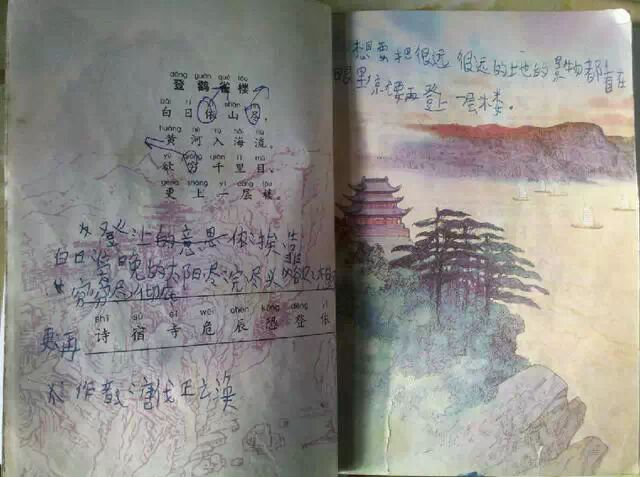 dēng guàn què lóu
登鹳雀楼
bái rì yī shān jìn
白日依山尽,
huáng hé rù hǎi liú
黄河入海流。
yù qióng qiān lǐ mù
欲穷千里目,
gèng shàng yì céng lóu
更上一层楼。
登上的意思 依:挨 靠
白日 傍晚的太阳 尽:完 尽头 欲:想
穷:穷尽
shī sù sì wēi chén kǒng dēng yī
诗 宿 寺 危 辰 恐 登 依
更:再
作者:唐代 王之涣
想要把很远 很远的土也的景物都看在
眼里 京尤要再登上一层木娄。